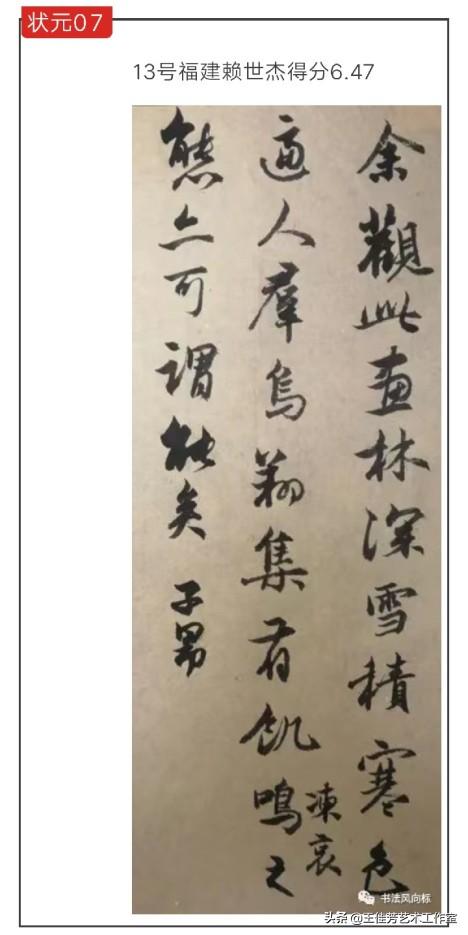 状元07
13号福建赖世杰得分6.47
余觀此畫林深雪積寒色
逼人羣烏翔集有飢鳴之
凍哀
態亦可謂能矣 子昂
书法风向标
头条 @王佳芳艺术工作室